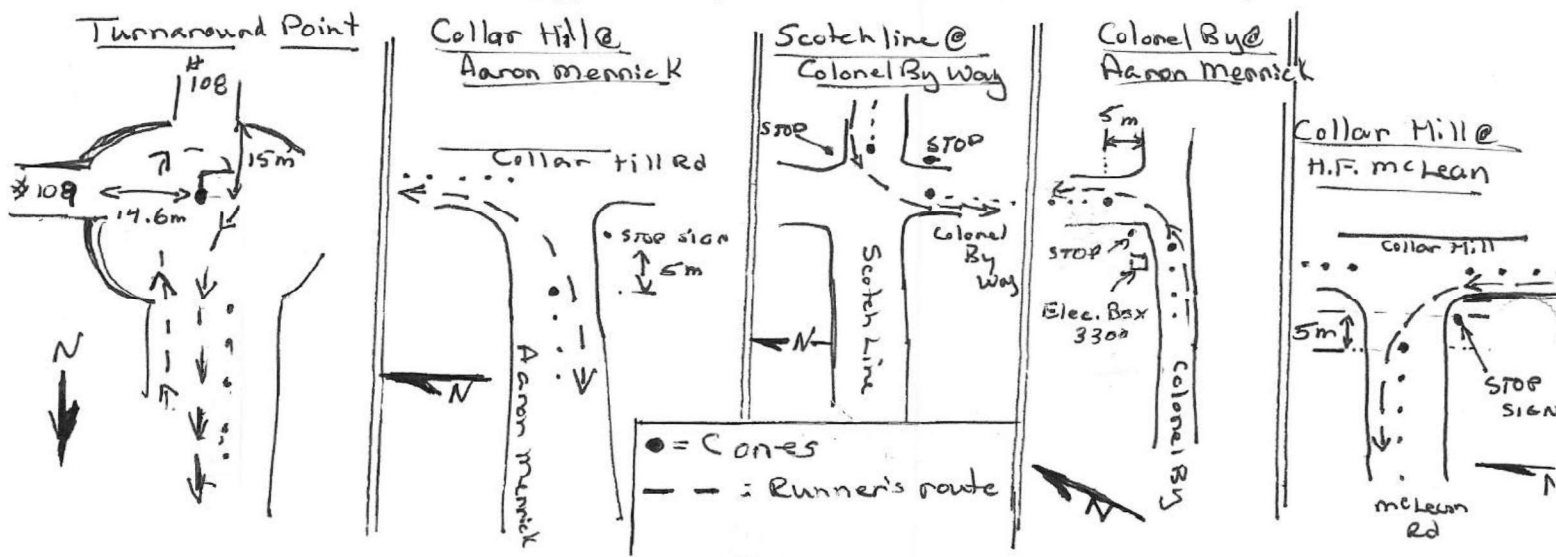 Turnaround Point
#
108
15m
# 109
14.6m
N
Collar Hill @
Aaron Merrick
Collar Hill Rd
STOP SIGN
5m
N
Aaron Merrick
Scotch line @
Colonel By Way
STOP
STOP
Colonel
By
Way
N
Scotch Line
● = Cones
— — — = Runner's route
Colonel By @
Aaron Merrick
5m
STOP
Elec. Box
3300
N
Colonel By
Collar Hill @
H.F. McLean
Collar Hill
5m
STOP
SIGN
N
McLean
Rd